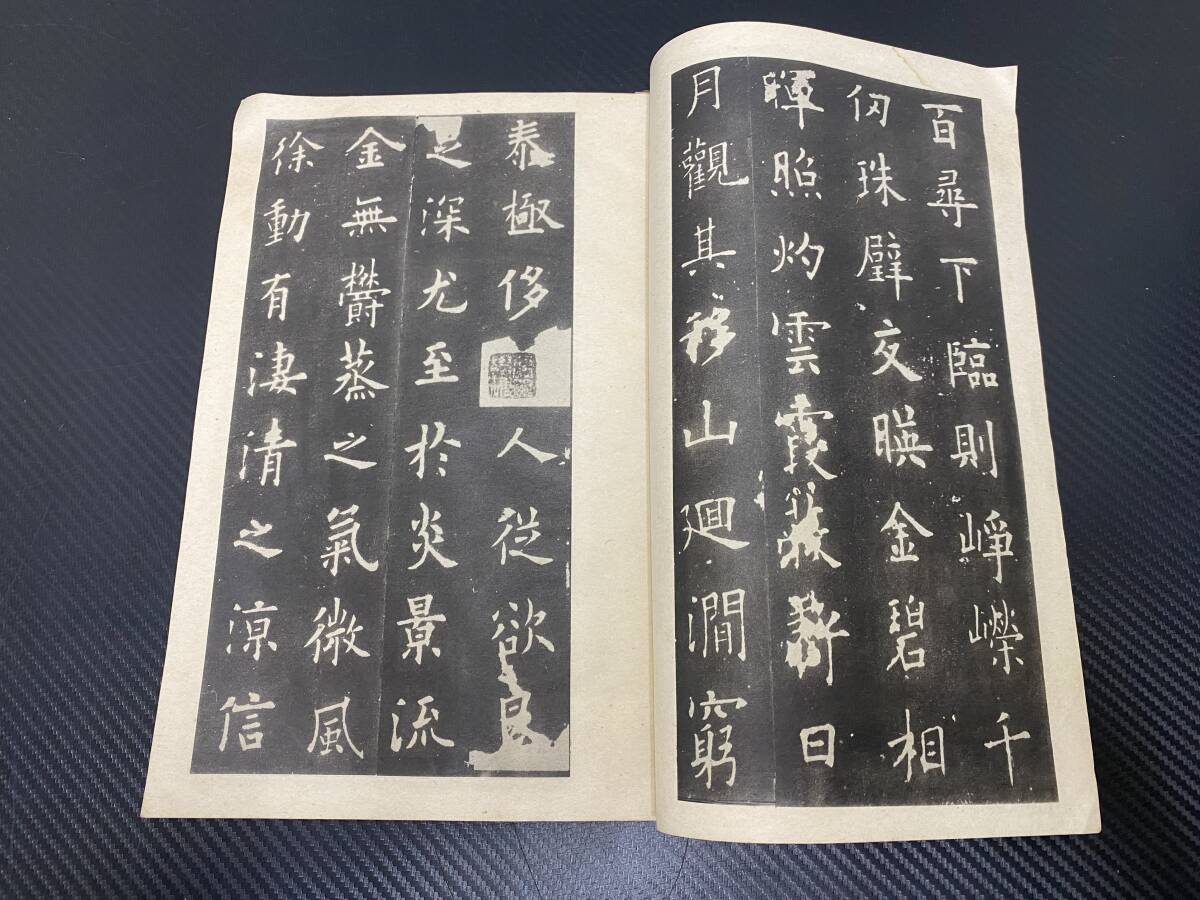 百尋下臨則崢嶸千
仞珠壁交暎金碧相
暉照灼雲霞蔽虧日
月觀其移山廻澗窮
泰極侈人從欲良
之深尤至於炎景流
金無欝蒸之氣微風
徐動有淒清之涼信